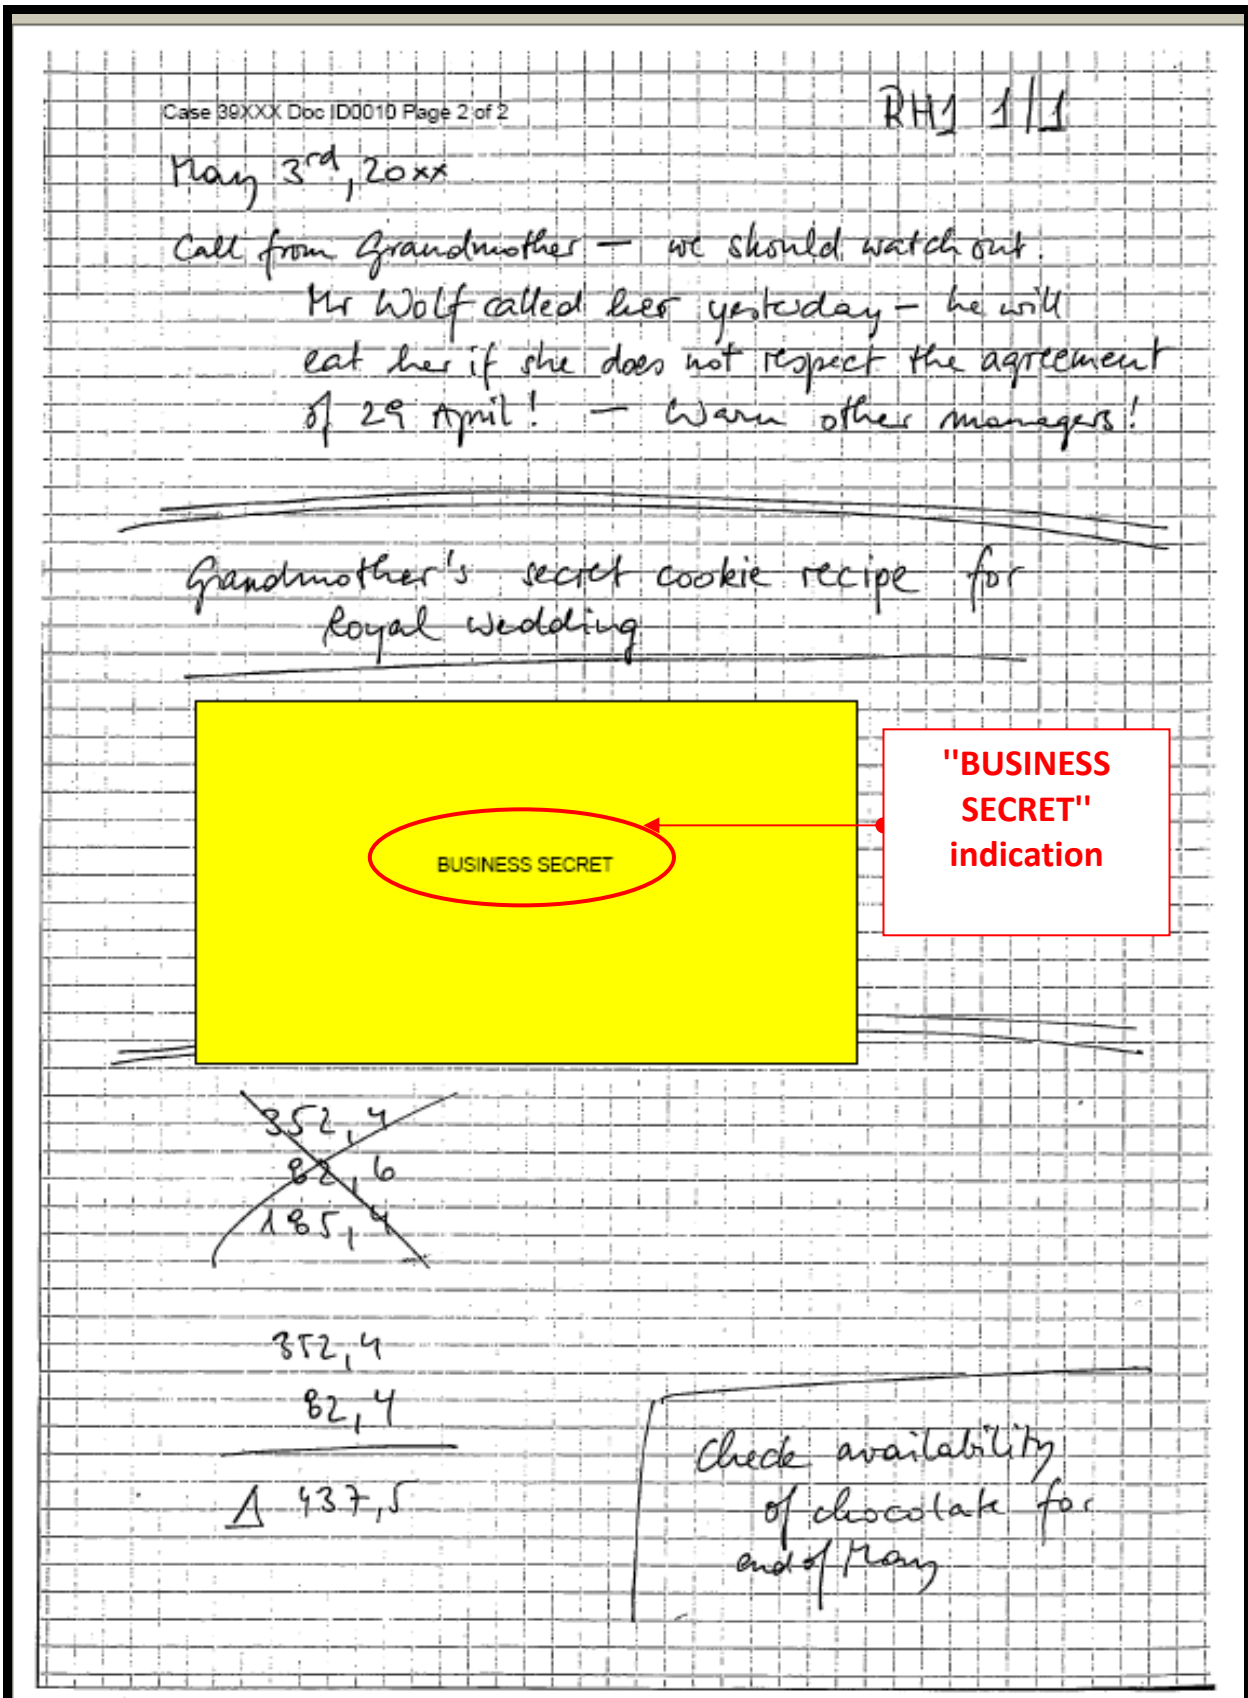 Case 39XXX Doc ID0010 Page 2 of 2
RH1 1/1
May 3rd, 20xx
Call from Grandmother — we should watch out.
Mr Wolf called her yesterday — he will
eat her if she does not respect the agreement
of 29 April! — Warn other managers!
Grandmother's secret cookie recipe for
Royal wedding
BUSINESS SECRET
"BUSINESS
SECRET"
indication
352,4
82,6
185,4
352,4
82,4
Δ 437,5
Check availability
of chocolate for
end of May